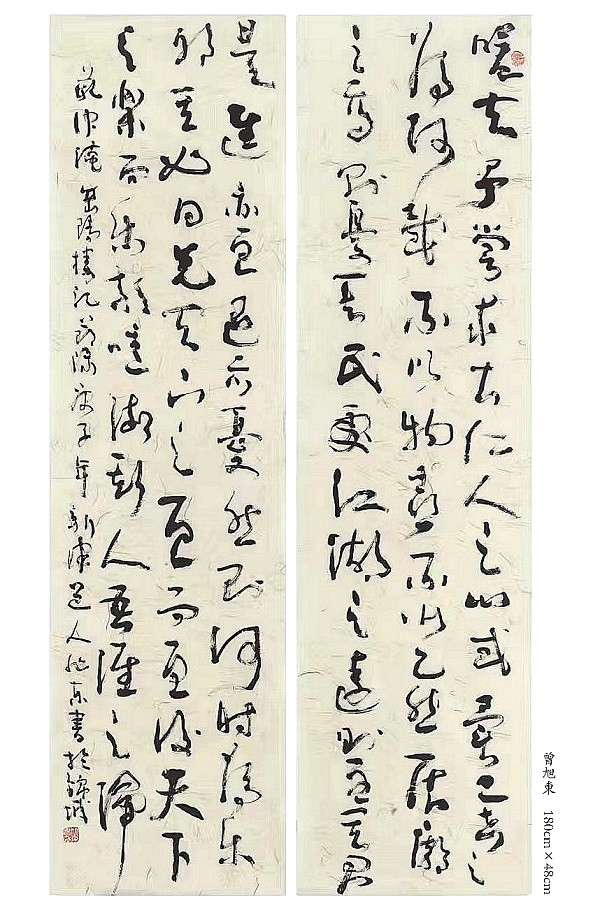 嗟夫予嘗求古仁人之心或異二者之
為何哉不以物喜不以己悲居廟
之高則憂其民處江湖之遠則憂其君
是進亦憂退亦憂然則何時為樂
耶其必曰先天下之憂而憂後天下
之樂而樂歟噫微斯人吾誰與歸
范仲淹岳陽樓記節錄庚子年新津道人旭東書於錦城
曾旭東 180cm×48cm